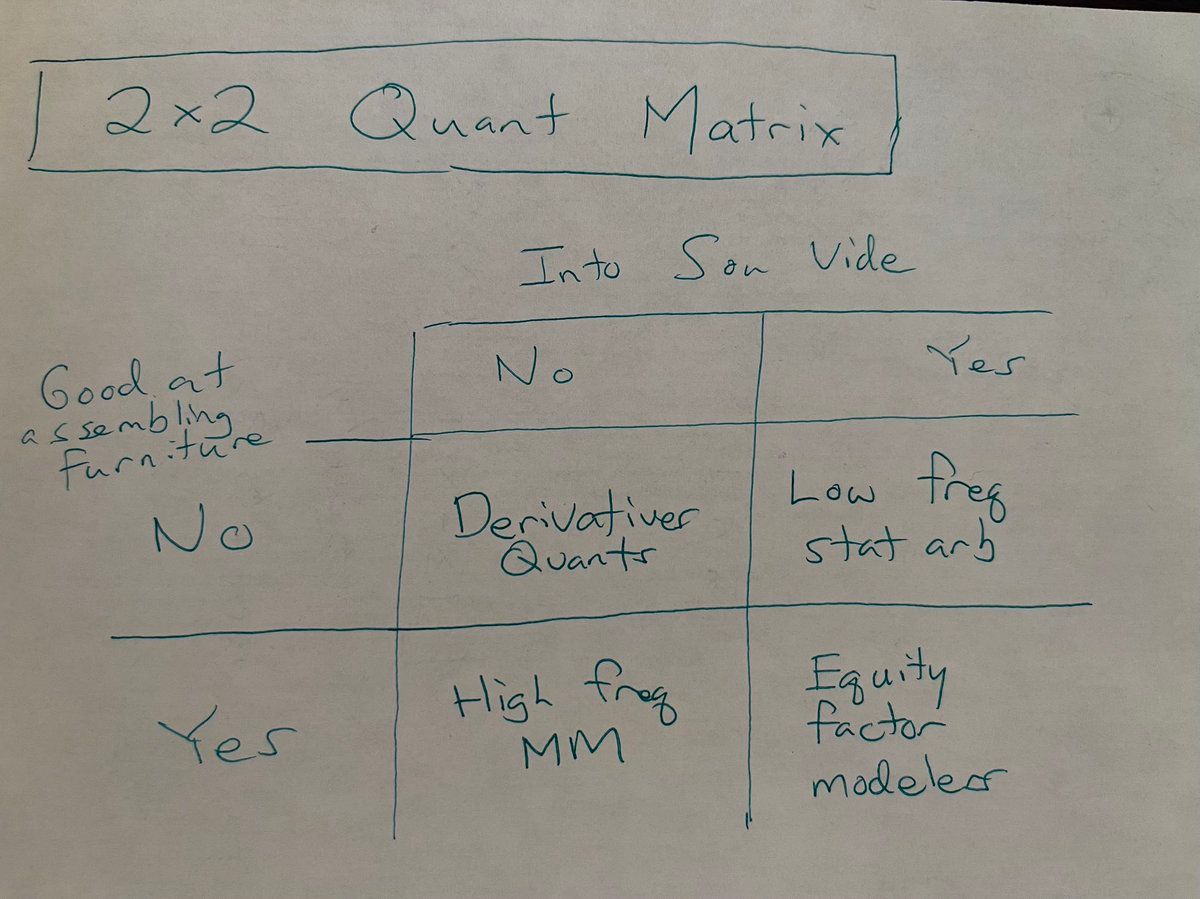 2x2 Quant Matrix
Into Sou Vide
No Yes
Good at
assembling
furniture
No
Derivatives
Quants
Low freq
stat arb
Yes
High freq
MM
Equity
factor
modelers